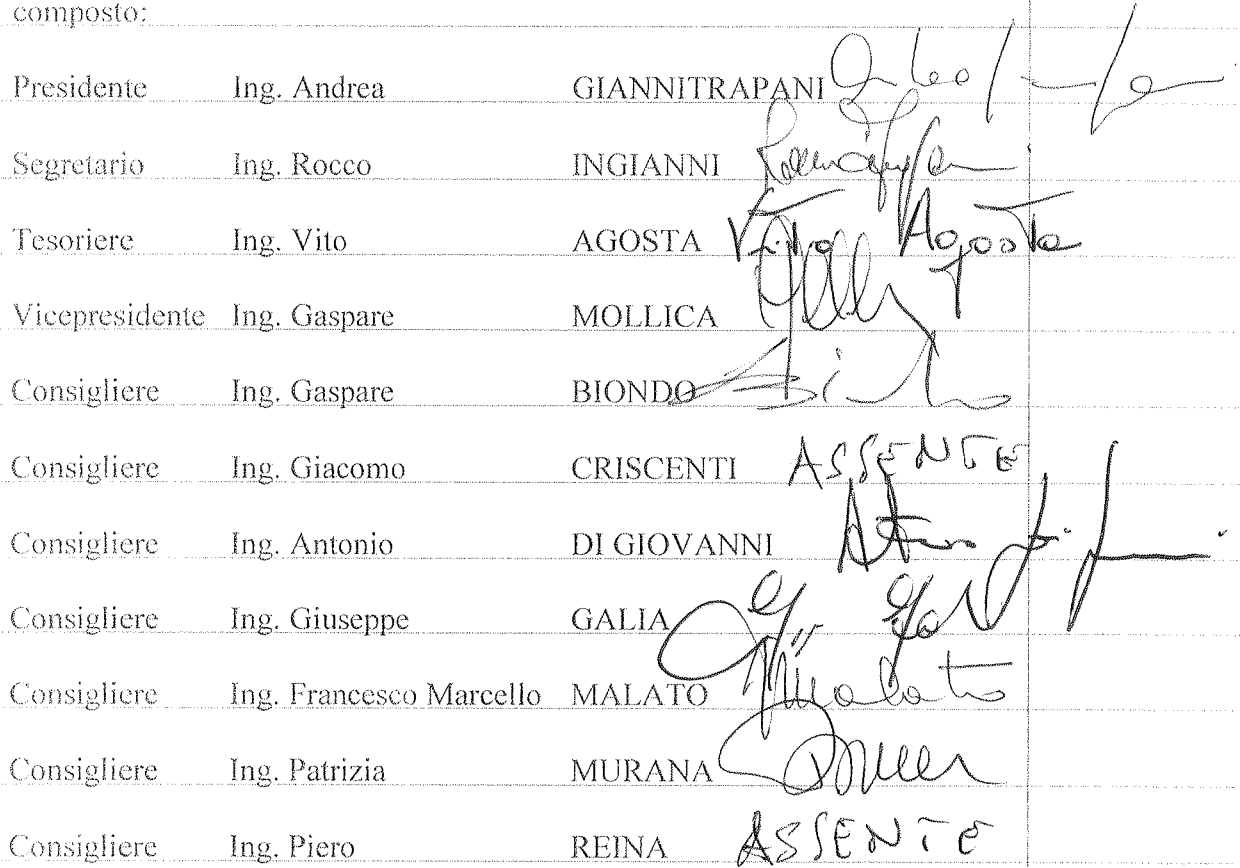 composto:
Presidente Ing. Andrea GIANNITRAPANI
Segretario Ing. Rocco INGIANNI
Tesoriere Ing. Vito AGOSTA Vito Agosta
Vicepresidente Ing. Gaspare MOLLICA
Consigliere Ing. Gaspare BIONDO
Consigliere Ing. Giacomo CRISCENTI ASSENTE
Consigliere Ing. Antonio DI GIOVANNI
Consigliere Ing. Giuseppe GALIA
Consigliere Ing. Francesco Marcello MALATO Malato
Consigliere Ing. Patrizia MURANA
Consigliere Ing. Piero REINA ASSENTE